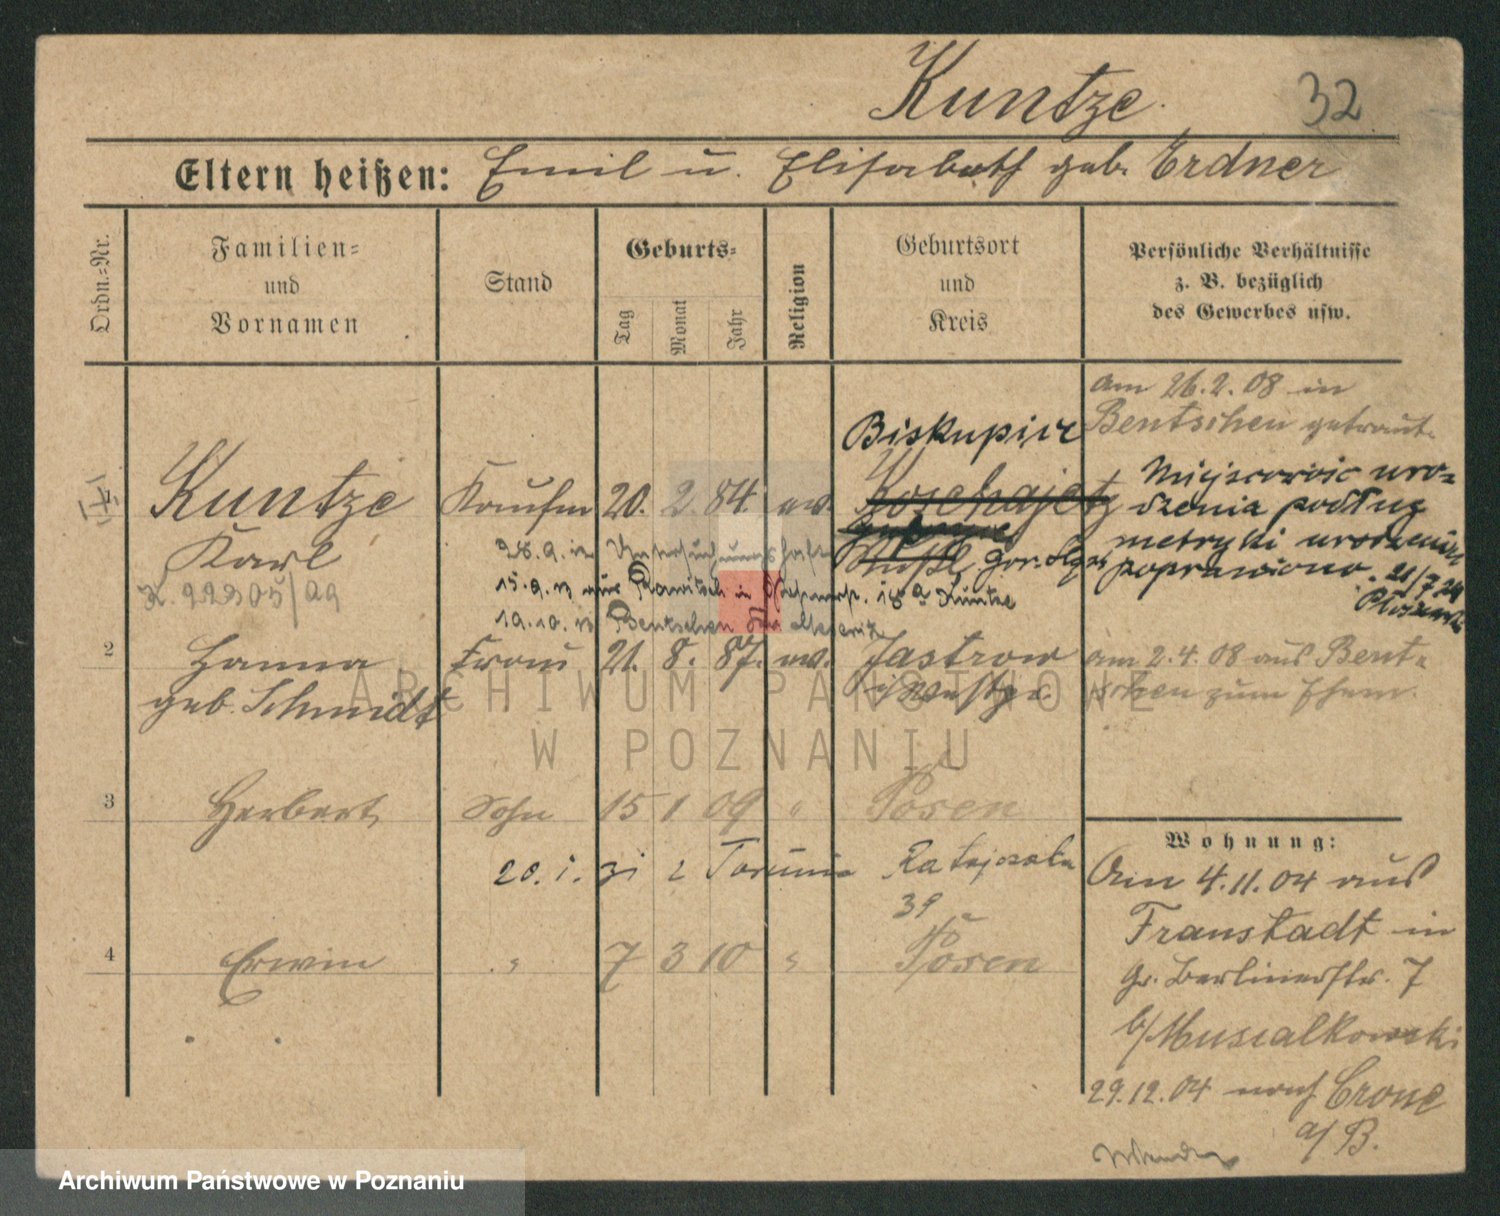 Kuntze.
32
Eltern heißen: Emil u. Elisabeth geb. Erdner
Ordn.=Nr.
Familien=
und
Vornamen
Stand
Geburts=
Tag
Monat
Jahr
Religion
Geburtsort
und
Kreis
Persönliche Verhältnisse
z. B. bezüglich
des Gewerbes usw.
am 26.2.08 in
Bentschen getraut.
Biskupice
1
Kuntze
Karl
Kaufm
20. 2. 84. ev.
Koschajetz
Miejscowość uro-
dzenia podług
metryki urodzenia
poprawiono. 21/7 24
28.9.12 Untersuchungshaft
15.9.13 aus Rawitsch in
19.10.13 Bentschen
2
Hanna
geb. Schmidt
Frau
21. 8. 87. ev.
Jastrow
i/Westpr.
am 2.4.08 aus Bent-
schen zum Ehem.
3
Herbert
Sohn
15 1 09 "
Posen
20. 1. 31 z Torunia Ratajczaka
39
4
Erwin
"
7 3 10 "
Posen
Wohnung:
Am 4.11.04 aus
Fraustadt in
Gr. Berlinerstr. 7
b/Musialkowski
29.12.04 nach Crone
a/B.
ARCHIWUM PAŃSTWOWE
W POZNANIU
Archiwum Państwowe w Poznaniu